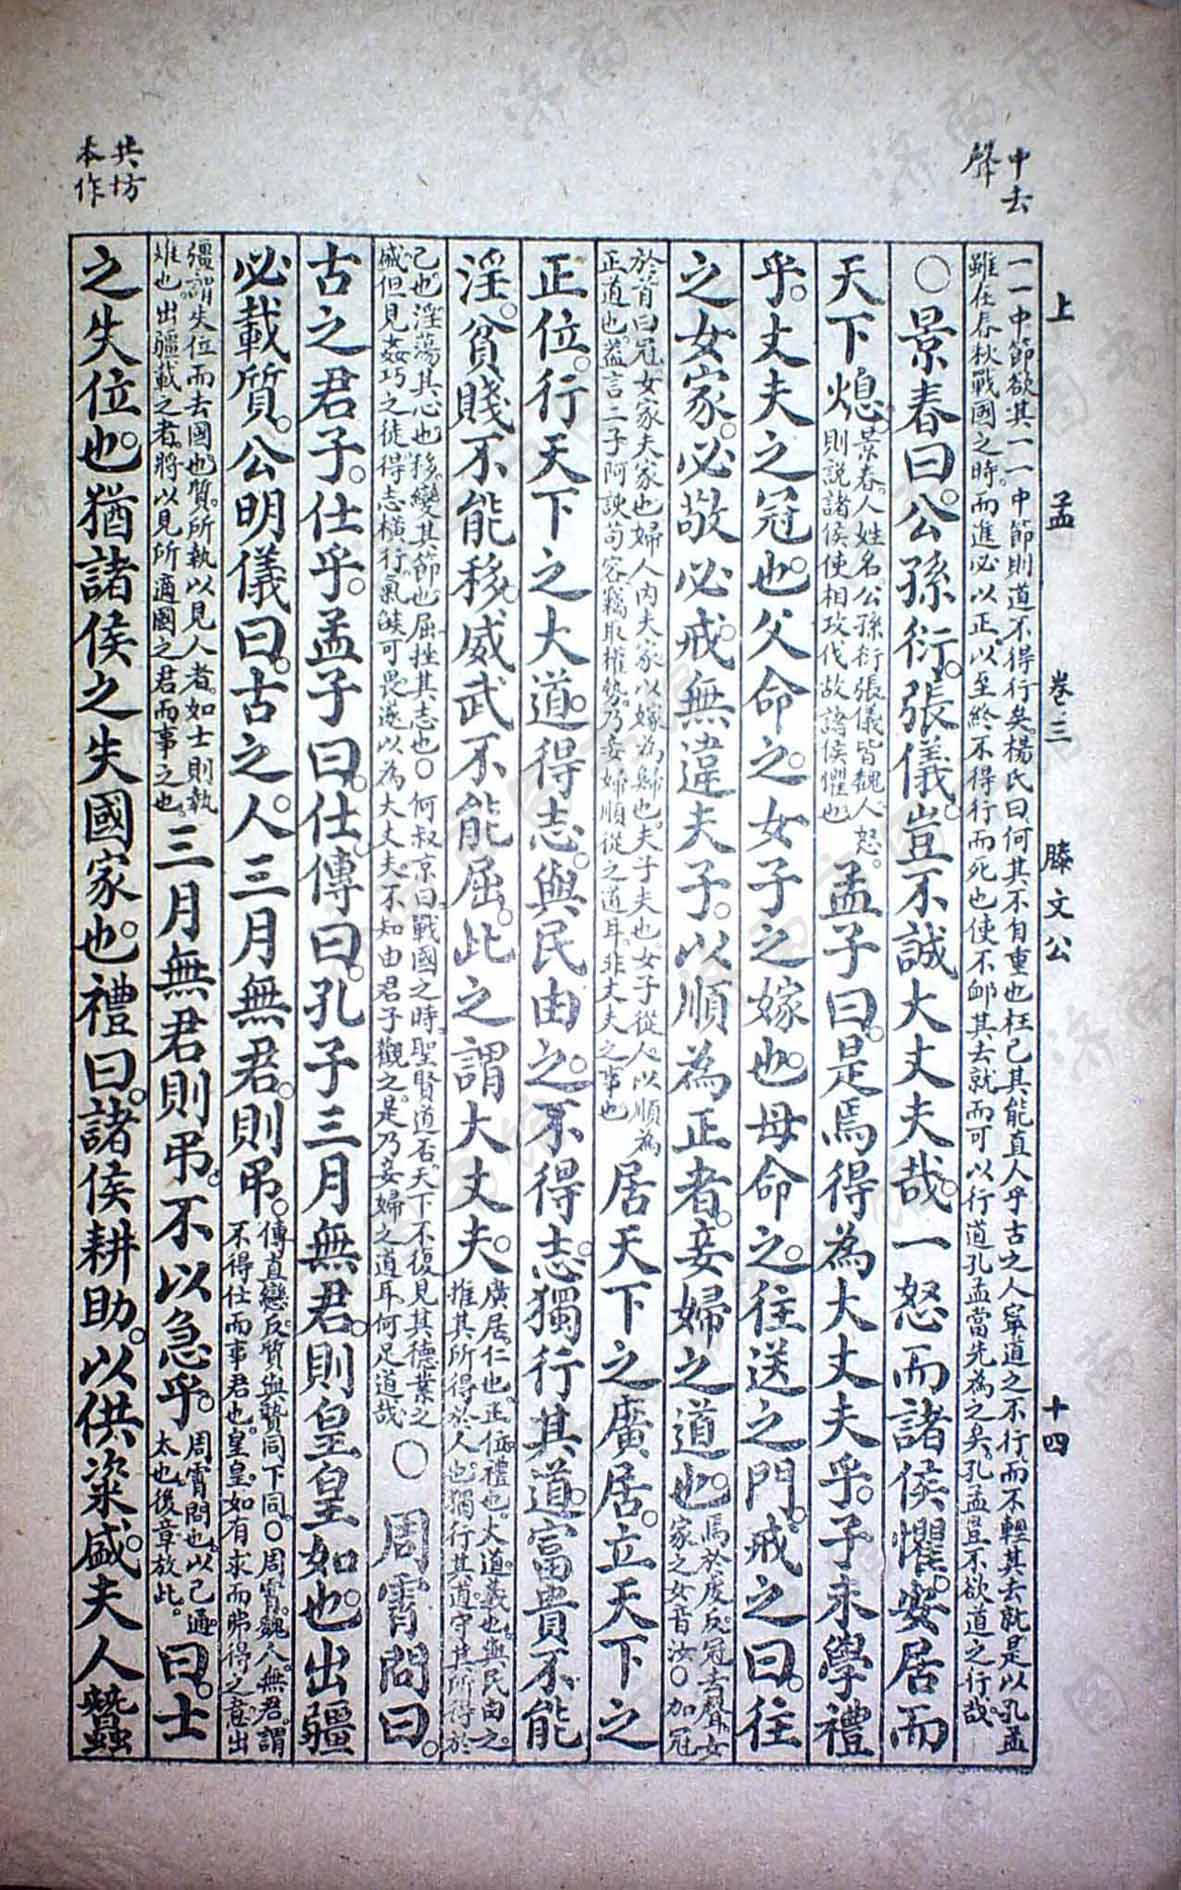 中去
聲
共坊
本作
上孟 卷三 滕文公 十四
一一中節欲其一一中節則道不得行矣。楊氏曰。何其不自重也枉己其能直人乎古之人寧道之不行。而不輕其去就。是以孔孟
雖在春秋戰國之時。而進必以正。以至終不得行而死也使不卹其去就而可以行道孔孟當先為之矣。孔孟豈不欲道之行哉。
○景春曰。公孫衍。張儀。豈不誠大丈夫哉。一怒而諸侯懼。安居而
天下熄。景春。人姓名。公孫衍張儀皆魏人。怒。則說諸侯使相攻伐。故諸侯懼也。孟子曰。是焉得為大丈夫乎。子未學禮
乎。丈夫之冠也。父命之。女子之嫁也。母命之。往送之門。戒之曰。往
之女家。必敬必戒。無違夫子。以順為正者。妾婦之道也。焉於虔反。冠去聲。女家之女音汝。○加冠
於首曰冠。女家夫家也婦人內夫家以嫁為歸也。夫子夫也女子從人。以順為正道也。蓋言二子阿諛苟容竊取權勢。乃妾婦順從之道耳。非丈夫之事也居天下之廣居。立天下之
正位。行天下之大道。得志。與民由之。不得志。獨行其道。富貴不能
淫。貧賤不能移。威武不能屈。此之謂大丈夫。廣居。仁也。正位。禮也。大道。義也。與民由之。推其所得於人也。獨行其道。守其所得於
己也。淫蕩其心也。移。變其節也屈。挫其志也○何叔京曰戰國之時。聖賢道否。天下不復見其德業之盛但見姦巧之徒。得志橫行。氣燄可畏。遂以為大丈夫。不知由君子觀之。是乃妾婦之道耳。何足道哉。○周霄問曰。
古之君子。仕乎。孟子曰。仕。傳曰。孔子三月無君。則皇皇如也。出疆
必載質。公明儀曰。古之人。三月無君。則弔。傳直戀反。質與贄同下同。○周霄。魏人。無君。謂不得仕而事君也。皇皇。如有求而弗得之意出
疆謂失位而去國也質。所執以見人者。如士則執雉也。出疆載之者。將以見所適國之君而事之也。三月無君則弔。不以急乎。周霄問也。以已通。太也後章放此。曰。士
之失位也。猶諸侯之失國家也。禮曰。諸侯耕助。以供粢盛。夫人蠶